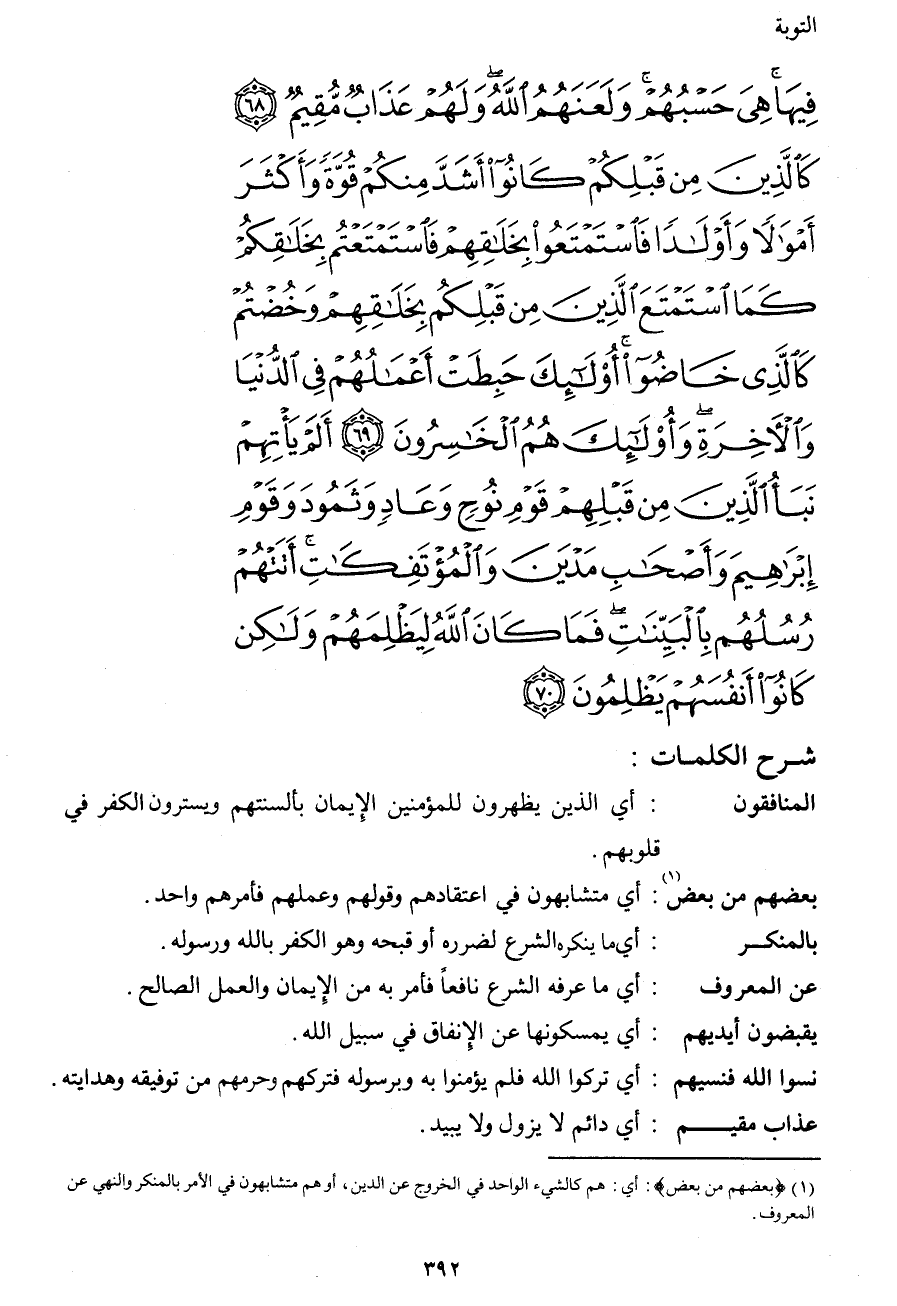 التوبة
فِيهَا هِىَ حَسْبُهُمْ ۚ وَلَعَنَهُمُ ٱللَّهُ ۖ وَلَهُمْ عَذَابٌ مُّقِيمٌ ﴿٦٨﴾
كَٱلَّذِينَ مِن قَبْلِكُمْ كَانُوٓا۟ أَشَدَّ مِنكُمْ قُوَّةً وَأَكْثَرَ
أَمْوَٰلًا وَأَوْلَٰدًا فَٱسْتَمْتَعُوا۟ بِخَلَٰقِهِمْ فَٱسْتَمْتَعْتُم بِخَلَٰقِكُمْ
كَمَا ٱسْتَمْتَعَ ٱلَّذِينَ مِن قَبْلِكُم بِخَلَٰقِهِمْ وَخُضْتُمْ
كَٱلَّذِى خَاضُوٓا۟ ۚ أُو۟لَٰٓئِكَ حَبِطَتْ أَعْمَٰلُهُمْ فِى ٱلدُّنْيَا
وَٱلْءَاخِرَةِ ۖ وَأُو۟لَٰٓئِكَ هُمُ ٱلْخَٰسِرُونَ ﴿٦٩﴾ أَلَمْ يَأْتِهِمْ
نَبَأُ ٱلَّذِينَ مِن قَبْلِهِمْ قَوْمِ نُوحٍ وَعَادٍ وَثَمُودَ وَقَوْمِ
إِبْرَٰهِيمَ وَأَصْحَٰبِ مَدْيَنَ وَٱلْمُؤْتَفِكَٰتِ ۚ أَتَتْهُمْ
رُسُلُهُم بِٱلْبَيِّنَٰتِ ۖ فَمَا كَانَ ٱللَّهُ لِيَظْلِمَهُمْ وَلَٰكِن
كَانُوٓا۟ أَنفُسَهُمْ يَظْلِمُونَ ﴿٧٠﴾
شـرح الكلمـات :
المنافقون : أي الذين يظهرون للمؤمنين الإيمان بألسنتهم ويسترون الكفر في
قلوبهم .
بعضهم من بعض(١) : أي متشابهون في اعتقادهم وقولهم وعملهم فأمرهم واحد .
بالمنكـــر : أي ما ينكره الشرع لضرره أو قبحه وهو الكفر بالله ورسوله .
عن المعروف : أي ما عرفه الشرع نافعاً فأمر به من الإيمان والعمل الصالح .
يقبضون أيديهم : أي يمسكونها عن الإنفاق في سبيل الله .
نسوا الله فنسيهم : أي تركوا الله فلم يؤمنوا به وبرسوله فتركهم وحرمهم من توفيقه وهدايته .
عذاب مقيـــــم : أي دائم لا يزول ولا يبيد .
(١) ﴿بعضهم من بعض﴾ : أي : هم كالشيء الواحد في الخروج عن الدين ، أو هم متشابهون في الأمر بالمنكر والنهي عن
المعروف .
٣٩٢